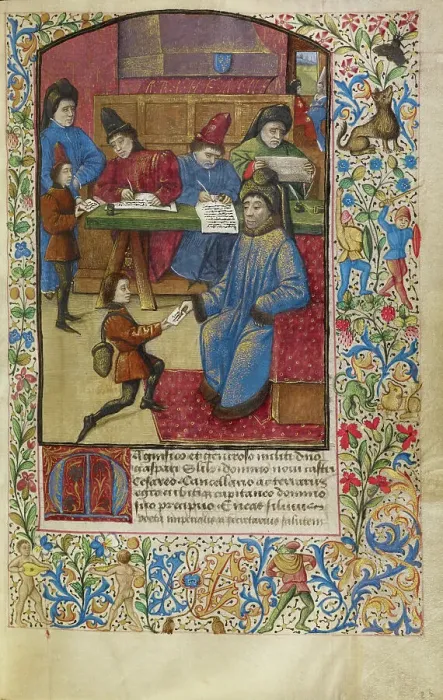 Magnifico et generoso militi dno
Caspari Slik domino noui castri
Cesareo Cancellario ac terrarum
egre cubitiq capitaneo domino
suo precipuo Eneas siluius
poeta imperialis secretarius salutem